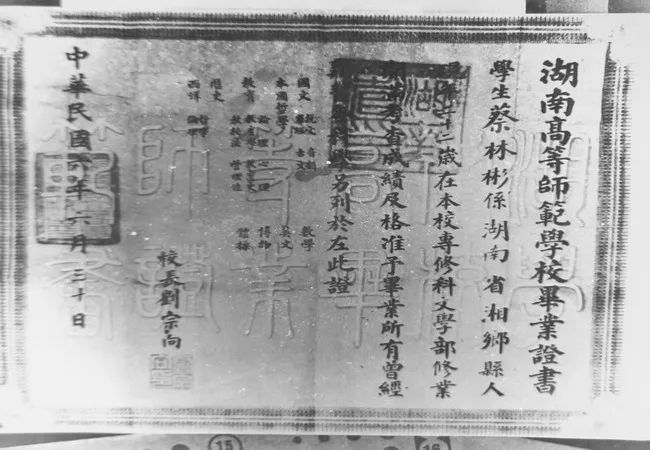 湖南高等師範學校畢業證書
學生蔡林彬係湖南省湘鄉縣人
年廿二歲在本校專修科文學部修業
考查成績及格准予畢業所有曾經
另列於左此證
國文 數學
本國哲學 英文
教育 論理 心理 博物
教授法 管理法 體操
歷史
西洋
校長劉宗向
中華民國六年六月三十日
15 16